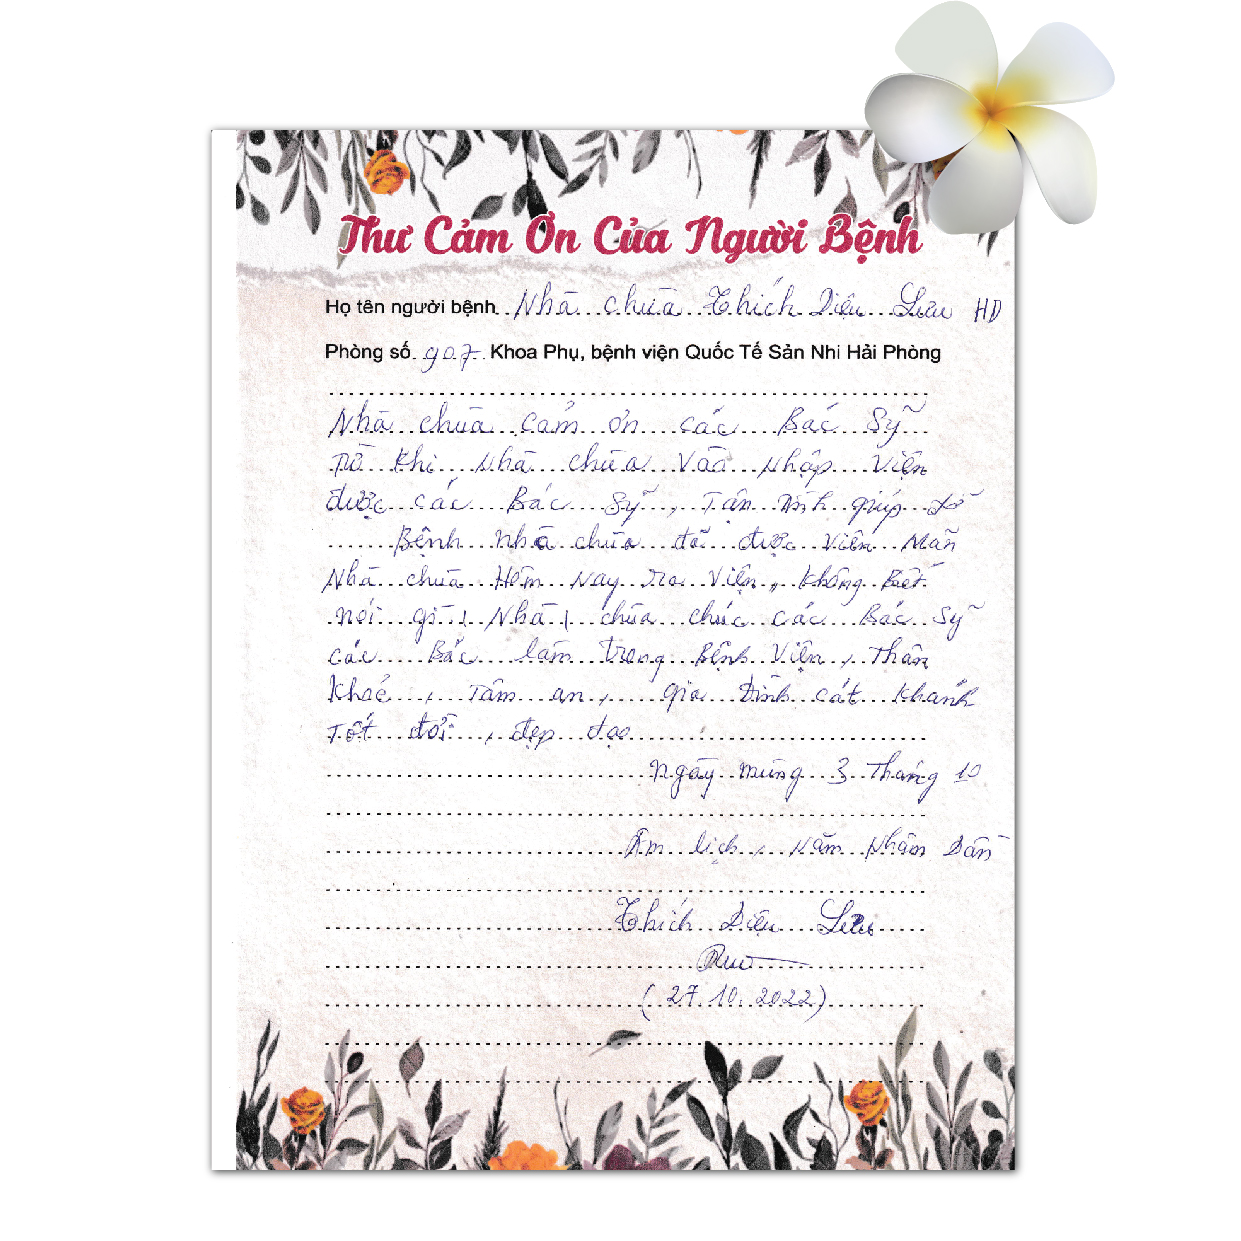 Thư Cảm Ơn Của Người Bệnh
Họ tên người bệnh Nhà chùa Thích Diệu Lưu HD
Phòng số 907 Khoa Phụ, bệnh viện Quốc Tế Sản Nhi Hải Phòng
Nhà chùa cảm ơn các Bác Sỹ
Từ khi nhà chùa vào nhập viện
được các Bác Sỹ, Tận tình giúp đỡ
Bệnh nhà chùa đã được viên mãn
Nhà chùa Hôm nay ra viện, không Biết
nói gì, Nhà chùa chúc các Bác Sỹ
các Bác làm trong Bệnh Viện, Thân
khoẻ, Tâm an, gia đình cát khánh
Tốt đời, đẹp đạo
Ngày mùng 3 Tháng 10
Âm lịch, Năm Nhâm Dần
Thích Diệu Lưu
(27.10.2022)